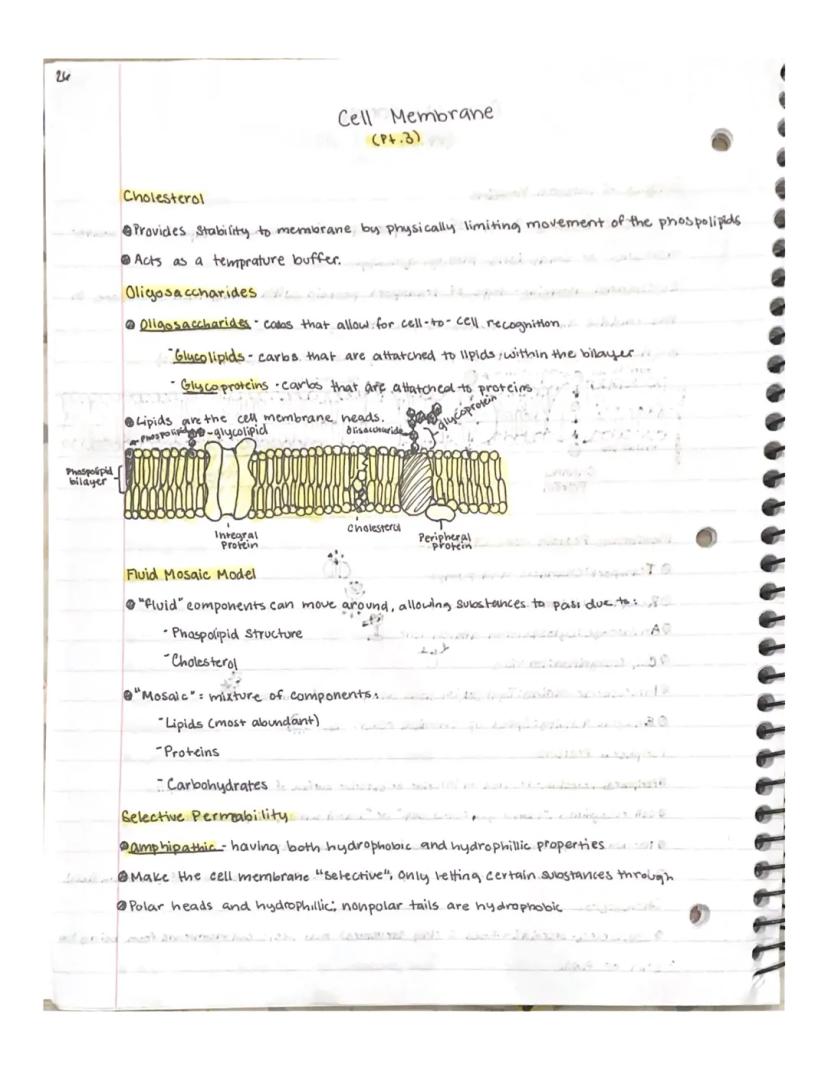 26
Cell Membrane
(Pt.3)
Cholesterol
Provides stability to membrane by physically limiting movement of the phospolipids
Acts as a temprature buffer.
Oligosaccharides
Oligosaccharides - cabs that allow for cell-to-cell recognition
- Glycolipids - carbs that are attatched to lipids within the bilayer
- Glycoproteins - carbs that are attatched to proteins
Lipids are the cell membrane heads.
Phospolipid
glycolipid
glycoprotein
Phospolipid
bilayer
Integral
Protein
Cholesterol
Peripheral
protein
Fluid Mosaic Model
"fluid" components can move around, allowing substances to pass due to:
- Phaspolipid structure
- Cholesterol
"Mosaic": mixture of components:
- Lipids (most abundant)
- Proteins
- Carbohydrates
Selective Permability
amphipathic - having both hydrophobic and hydrophillic properties
Make the cell membrane "selective", only letting certain substances through
Polar heads and hydrophillic; nonpolar tails are hydrophobic